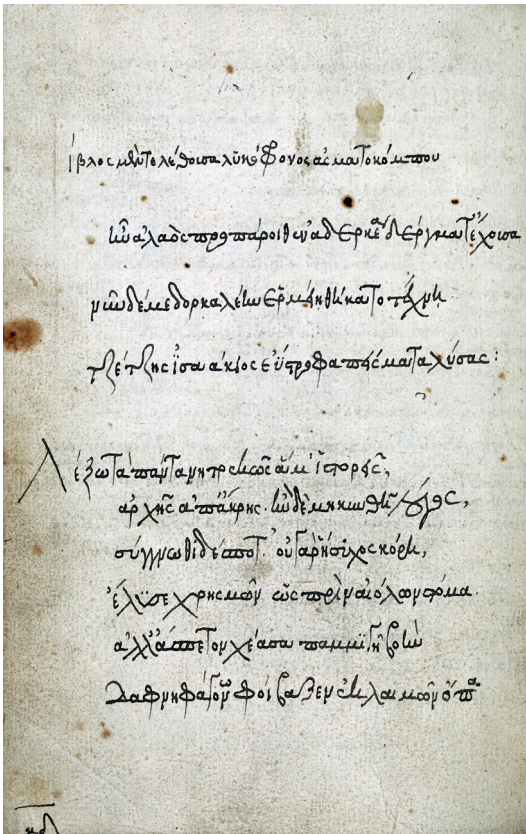 ίβλος μὲν τελέθοισα λυκόφρονος ἄσματα κόμπου
ἦν ἀλαὸς προπάροιθεν ἀδερκέα δέργματ' ἔχοισα
νῦν δέ με δορκαλέην ἑρμῇ θήκατο τέχνη
τζέτζης ἰσαάκιος εὔστροφα πήσματα λύσας:
Λέξω τὰ πάντα νητρεκῶς ἅ μ' ἱστορεῖς,
ἀρχῆς ἀπ' ἄκρης. ἢν δὲ μηκυνθῇ λόγος,
σύγγνωθι δέσποτ'. οὐ γὰρ ἥσυχος κόρη,
ἔλυσε χρησμῶν ὡς πρὶν αἰόλον στόμα.
ἀλλ' ἄσπετον χέασα παμμιγῆ βοὴν
Δαφνηφάγων φοίβαζεν ἐκ λαιμῶν ὄπα